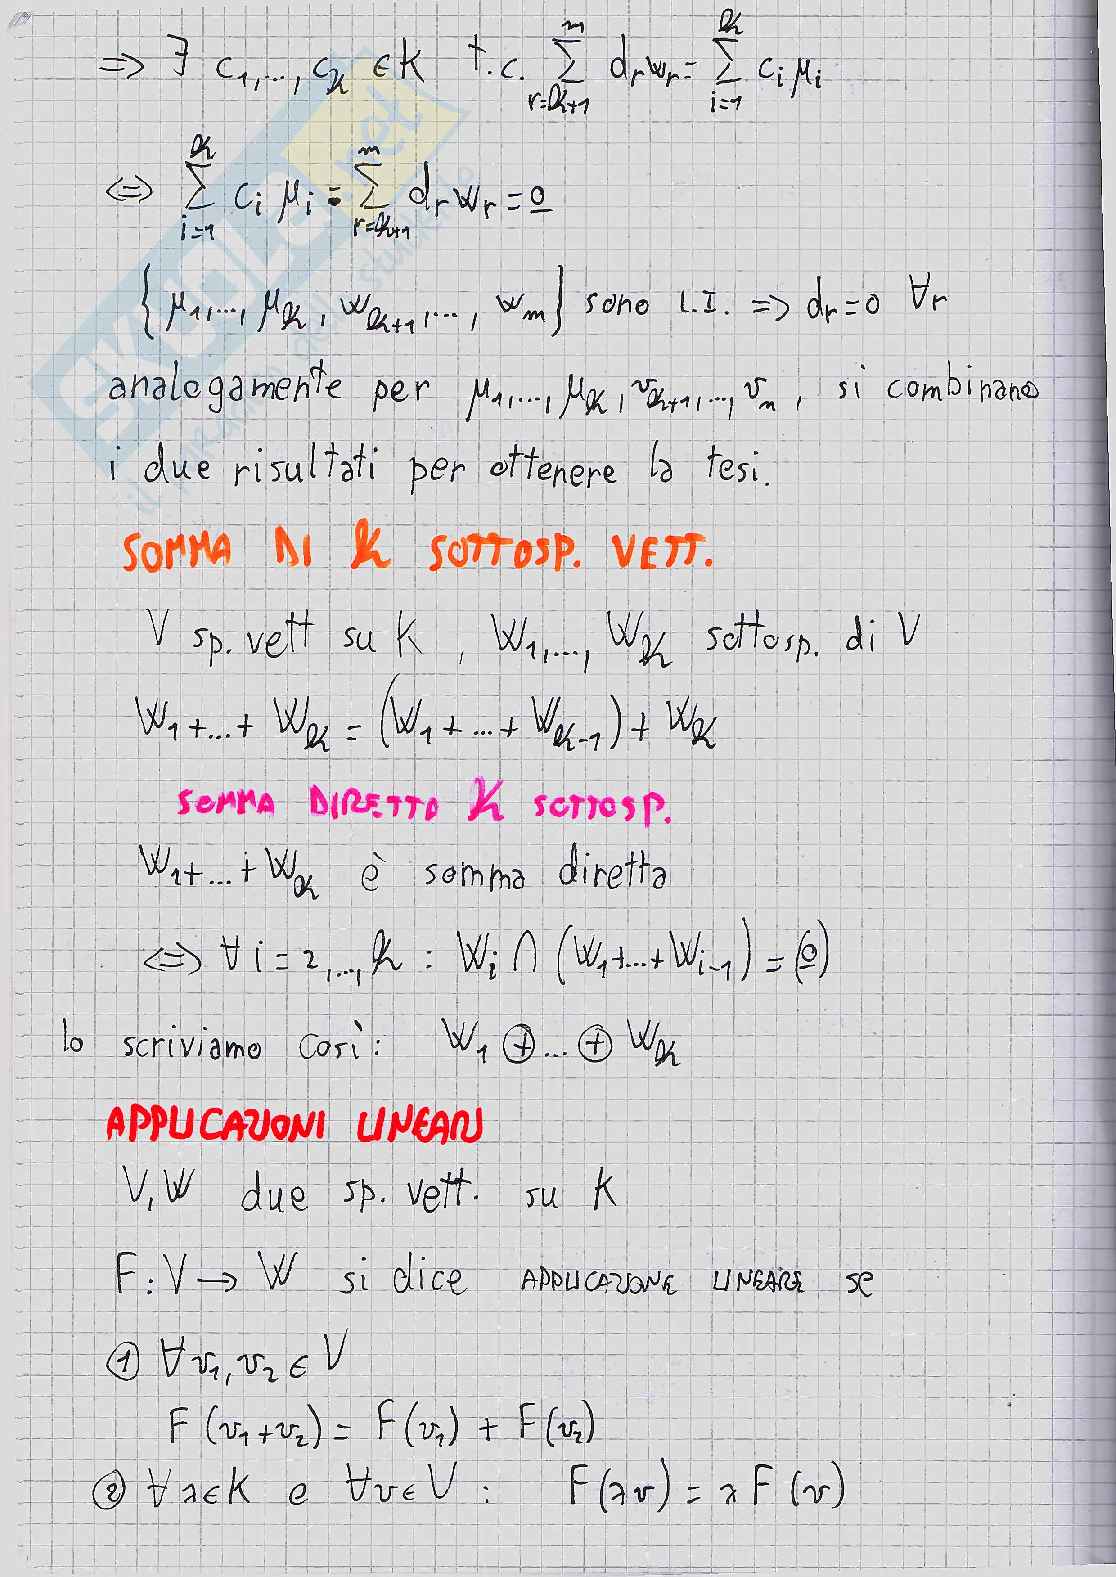 => ∃ c₁,..., c_k ∈ K t.c. ∑_{r=k+1}^{m} d_r w_r = ∑_{i=1}^{k} c_i μ_i
<=> ∑_{i=1}^{k} c_i μ_i = ∑_{r=k+1}^{m} d_r w_r = 0
{μ₁,..., μ_k, w_{k+1},..., w_m} sono L.I. => d_r = 0 ∀r
analogamente per μ₁,..., μ_k, v_{k+1},..., v_n, si combinano
i due risultati per ottenere la tesi.
SOMMA DI K SOTTOSP. VETT.
V sp. vett su K, W₁,..., W_k sottosp. di V
W₁+...+ W_k = (W₁+...+ W_{k-1}) + W_k
SOMMA DIRETTA K SOTTOSP.
W₁+...+W_k è somma diretta
<=> ∀ i = 2,..., k : W_i ∩ (W₁+...+W_{i-1}) = (0)
lo scriviamo così: W₁ ⊕ ... ⊕ W_k
APPLICAZIONI LINEARI
V, W due sp. vett. su K
F: V → W si dice APPLICAZIONE LINEARE se
① ∀ v₁, v₂ ∈ V
F(v₁+v₂) = F(v₁) + F(v₂)
② ∀ λ ∈ K e ∀ v ∈ V : F(λv) = λ F(v)